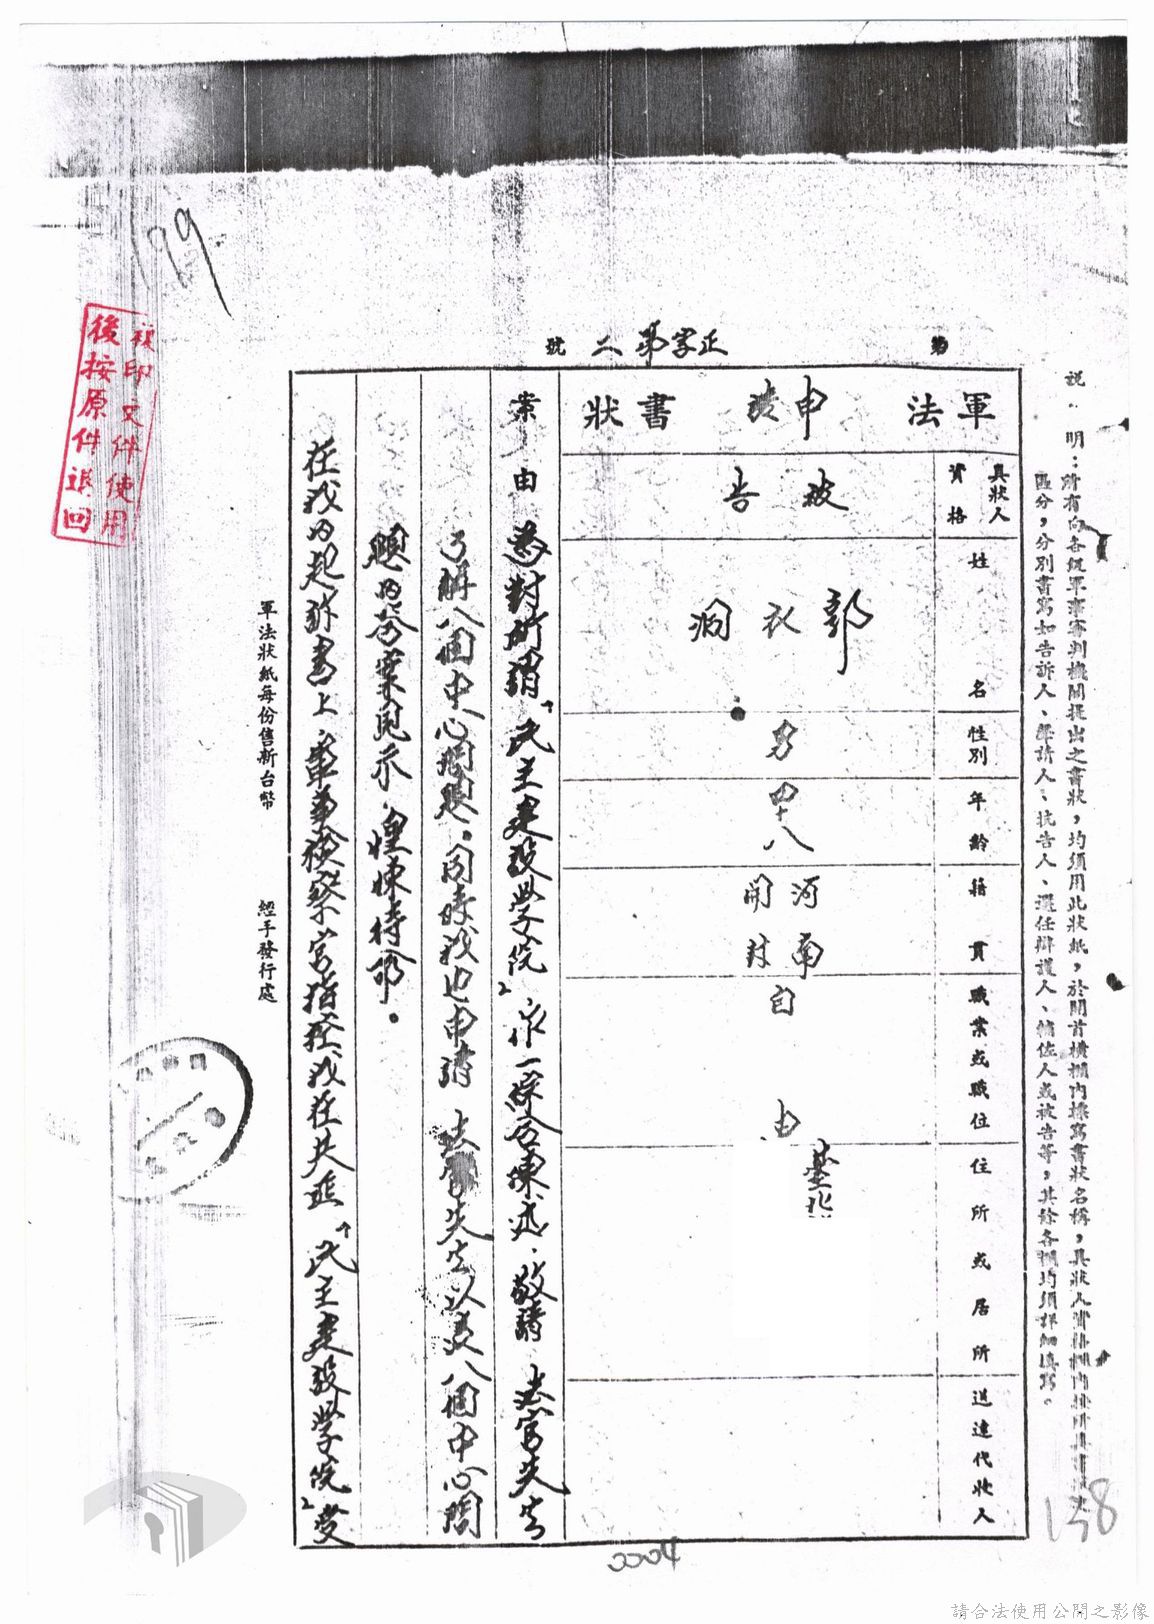 說明：所有向各級軍事審判機關提出之書狀，均須用此狀紙，於開首橫欄內標寫書狀名稱，具狀人資格欄內
區分，分別書寫如告訴人、聲請人、抗告人、選任辯護人、輔佐人或被告等，其餘各欄均須詳細填寫。
第 正字第二 號
軍法 申請 書狀
具狀人資格 被告
姓名 郭衣洞
性別 男
年齡 四十八
籍貫 河南開封
職業或職位 自由
住所或居所
送達代收人
案由 為對所謂「民主建設學院」,作一綜合陳述,敬請 法官先生
了解八個中心問題。同時我也申請 法官先生以這八個中心問
題的答案見示,惶悚待命。
在我的起訴書上,軍事檢察官指控我在共匪「民主建設學院」受
軍法狀紙每份售新台幣 經手發行處
複印文件使用
後按原件退回
199
158
0004
請合法使用公開之影像